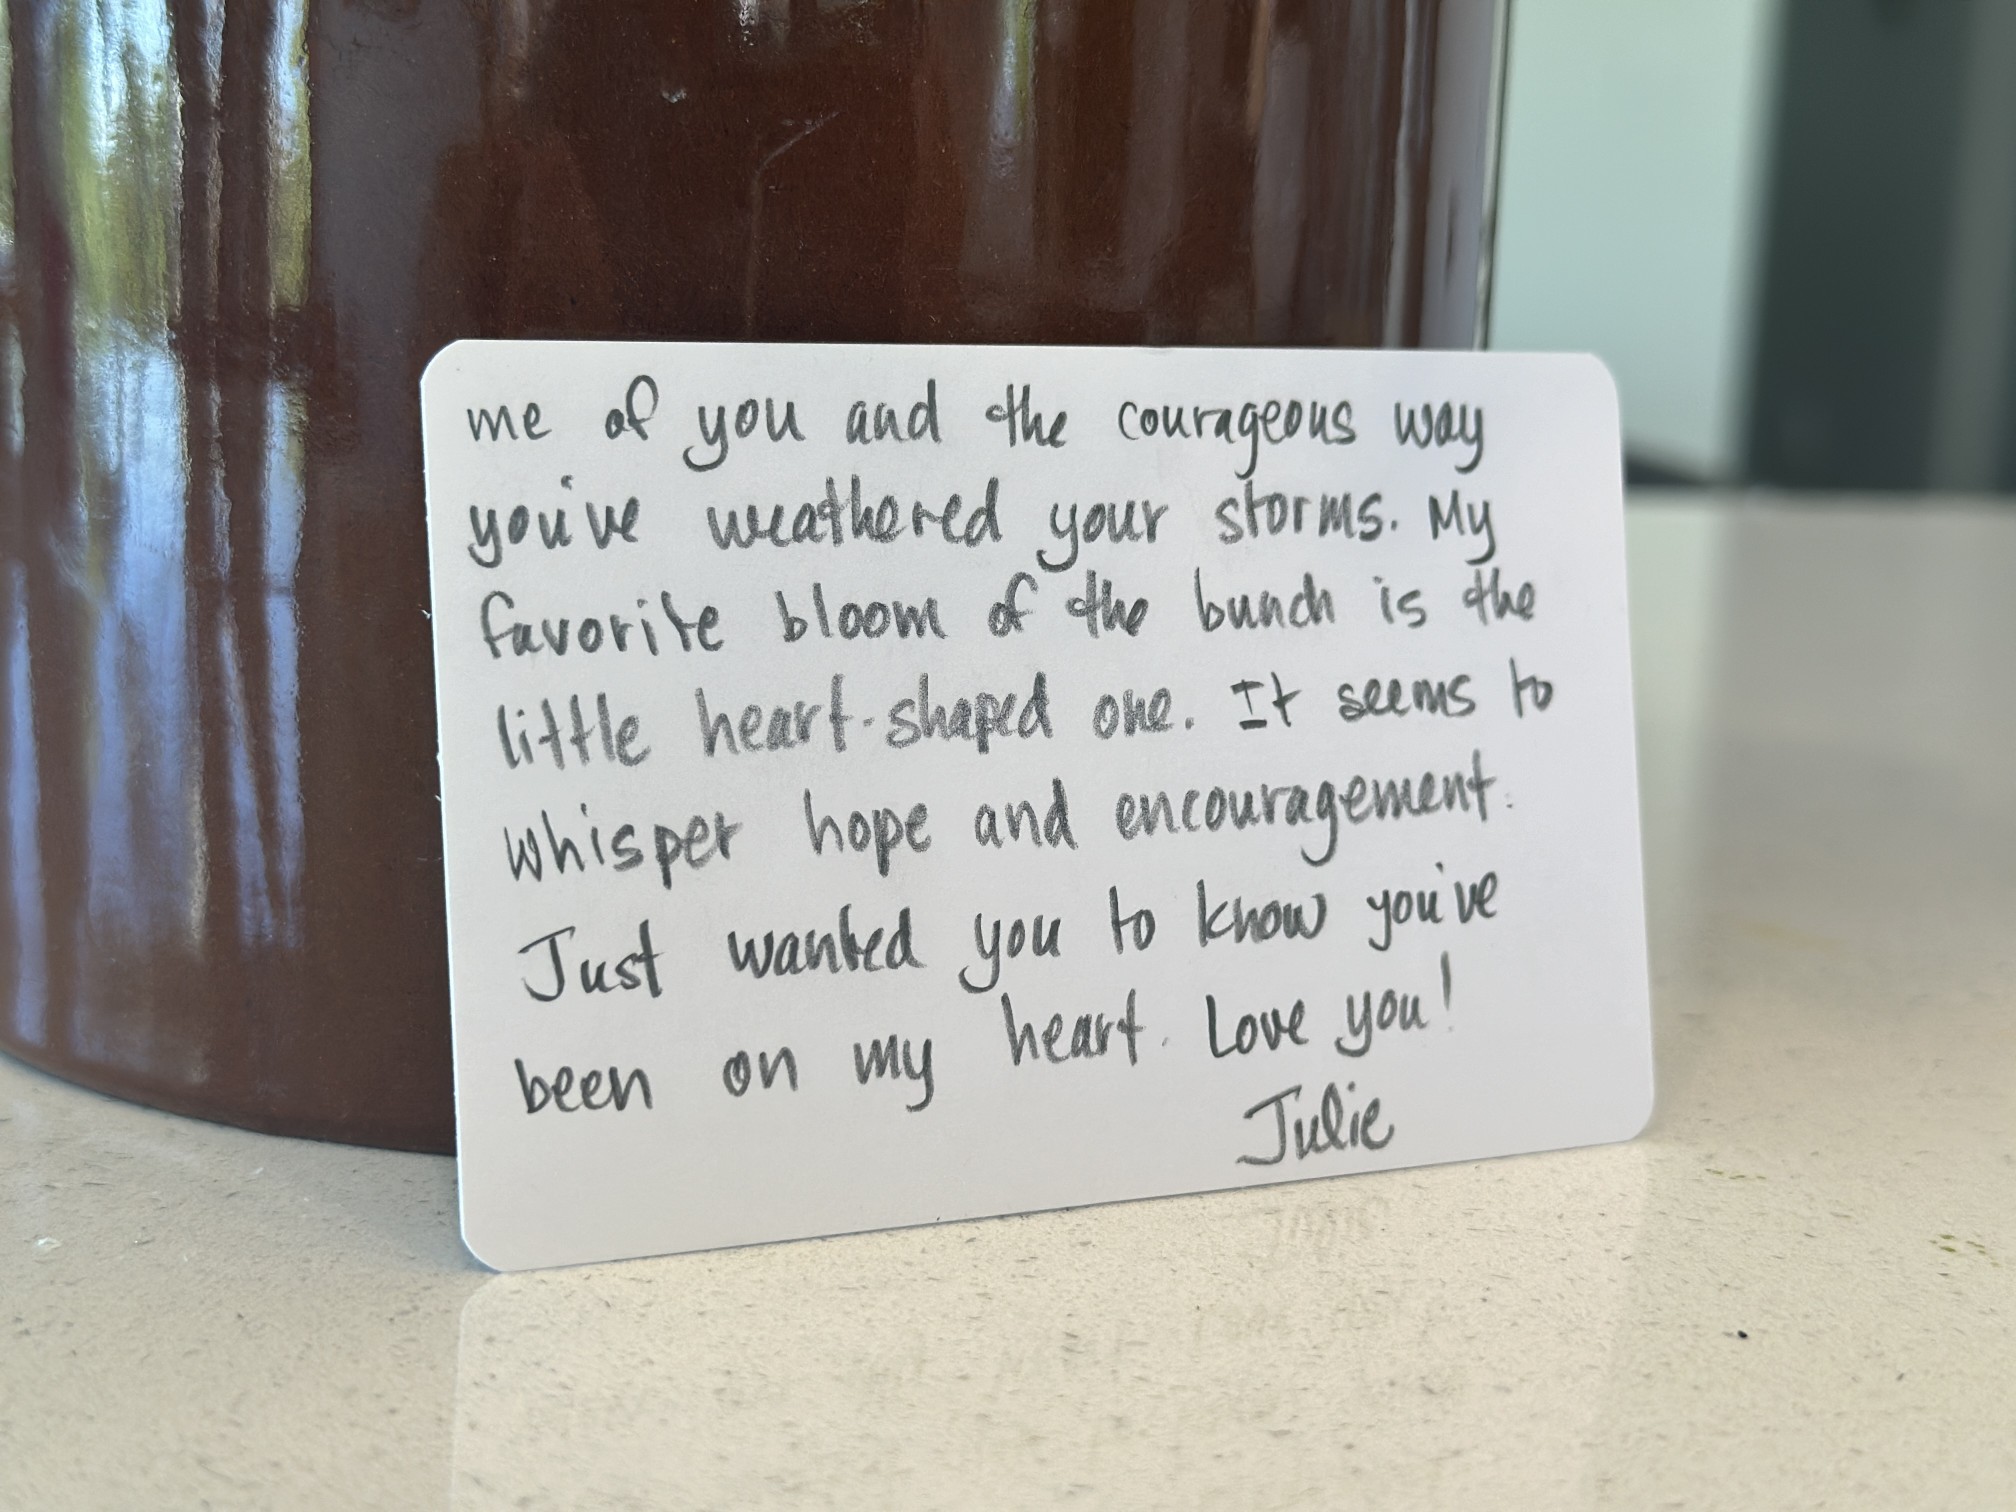 me of you and the courageous way
you've weathered your storms. My
favorite bloom of the bunch is the
little heart-shaped one. It seems to
whisper hope and encouragement.
Just wanted you to know you've
been on my heart. Love you!
Julie